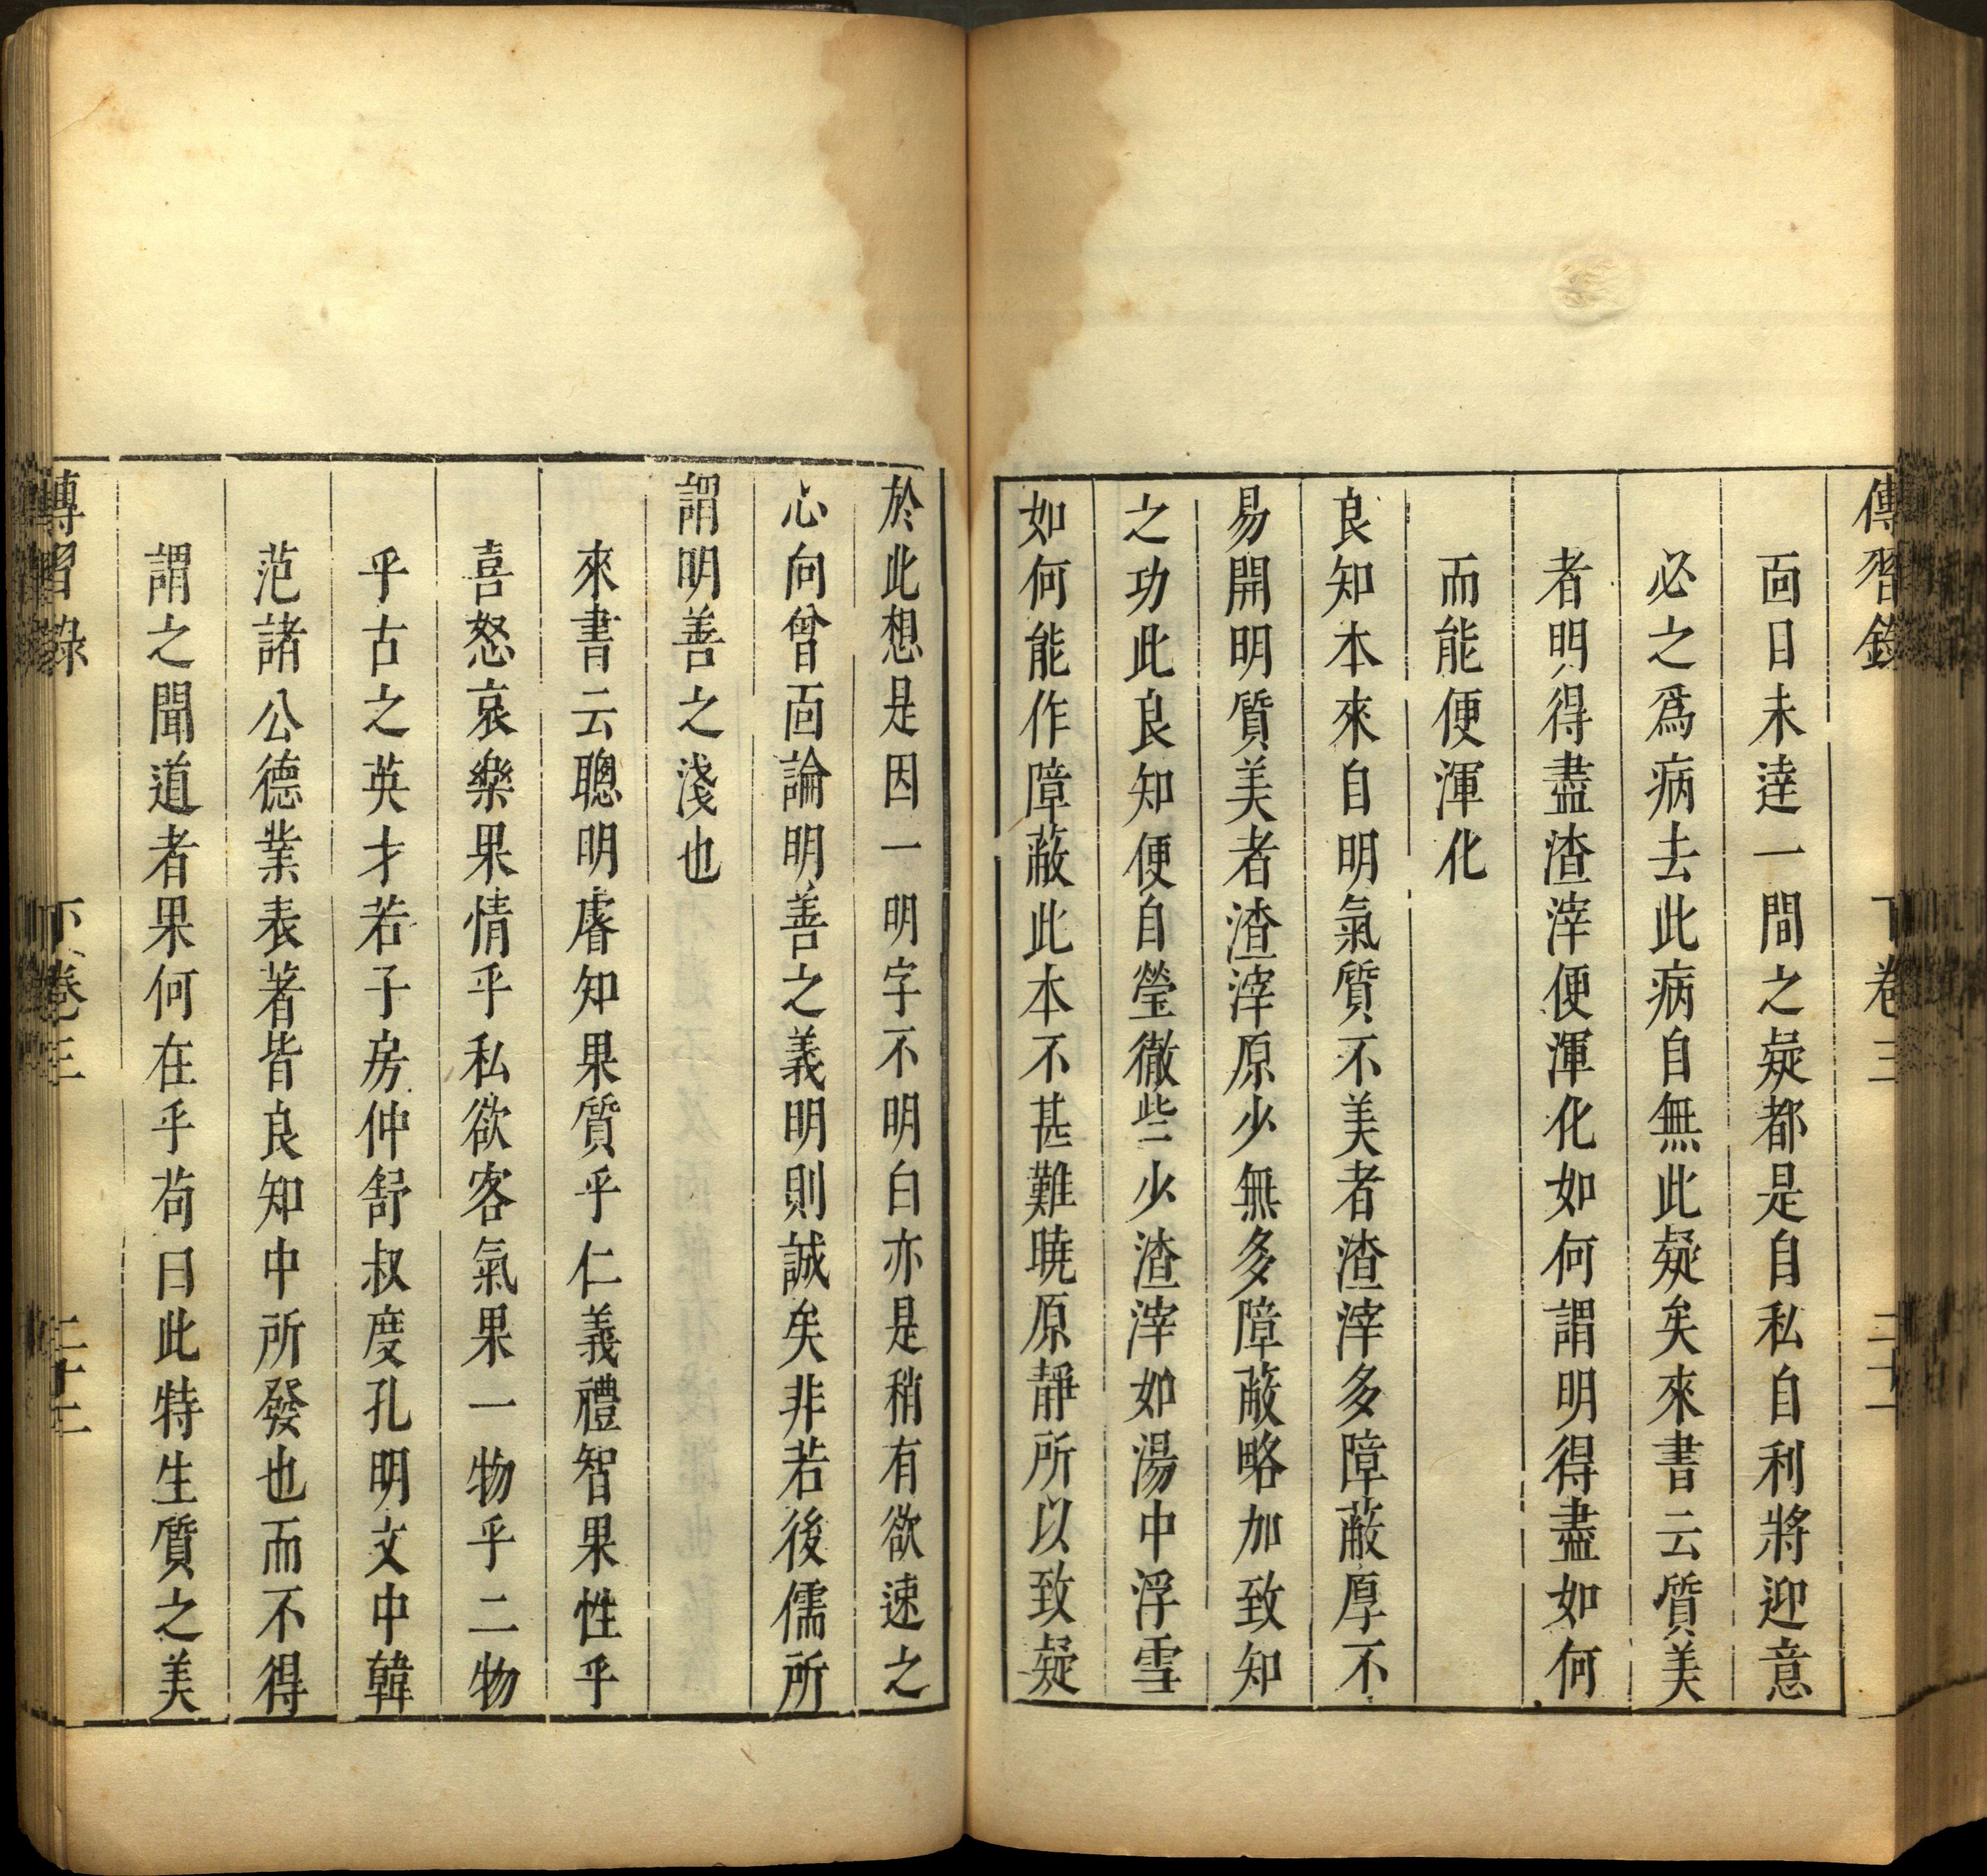 傳習錄 下卷三 二十一
面日未達一間之疑都是自私自利將迎意
必之爲病去此病自無此疑矣來書云質美
者明得盡渣滓便渾化如何謂明得盡如何
而能便渾化
良知本來自明氣質不美者渣滓多障蔽厚不
易開明質美者渣滓原少無多障蔽略加致知
之功此良知便自瑩徹些少渣滓如湯中浮雪
如何能作障蔽此本不甚難曉原靜所以致疑
於此想是因一明字不明白亦是稍有欲速之
心向曾面論明善之義明則誠矣非若後儒所
謂明善之淺也
來書云聰明睿知果質乎仁義禮智果性乎
喜怒哀樂果情乎私欲客氣果一物乎二物
乎古之英才若子房仲舒叔度孔明文中韓
范諸公德業表著皆良知中所發也而不得
謂之聞道者果何在乎苟曰此特生質之美
傳習錄 下卷三 二十二